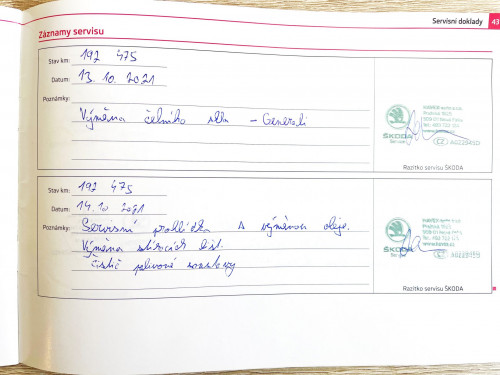 Servisní doklady 43
Záznamy servisu
Stav km: 192 475
Datum: 13. 10. 2021
Poznámky:
Výměna čelního skla - Generali
ŠKODA
Service
Razítko servisu ŠKODA
Stav km: 192 475
Datum: 14. 10 2021
Poznámky: Servisní prohlídka s výměnou oleje.
Výměna stíracích lišt.
čistič palivové soustavy
ŠKODA
Service
Razítko servisu ŠKODA